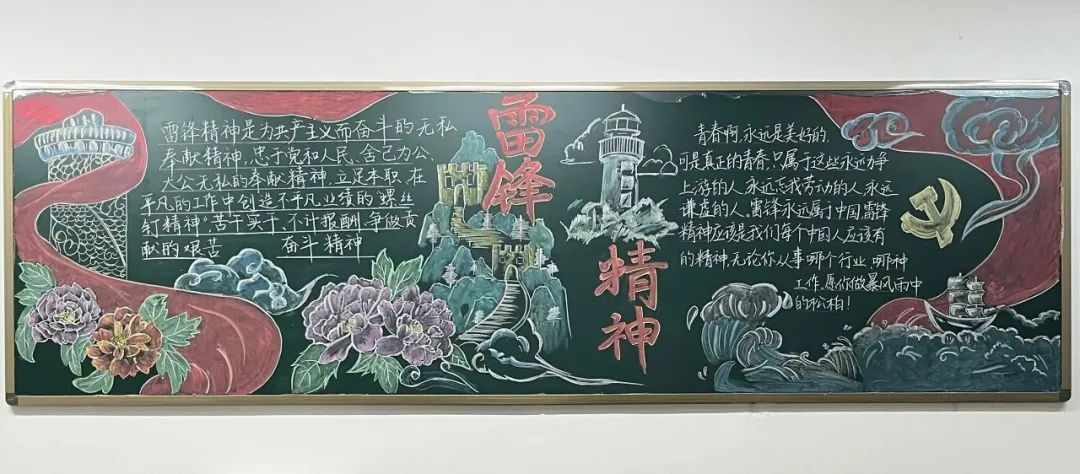 雷锋精神是为共产主义而奋斗的无私
奉献精神,忠于党和人民、舍己为公、
大公无私的奉献精神,立足本职、在
平凡的工作中创造不平凡业绩的"螺丝
钉精神"苦干实干、不计报酬、争做贡
献的艰苦 奋斗精神
雷锋
精神
青春啊,永远是美好的,
可是真正的青春,只属于这些永远力争
上游的人,永远忘我劳动的人,永远
谦虚的人,雷锋永远属于中国雷锋
精神应该是我们每个中国人应该有
的精神,无论你从事哪个行业,哪种
工作,愿你做暴风雨中
的松柏!